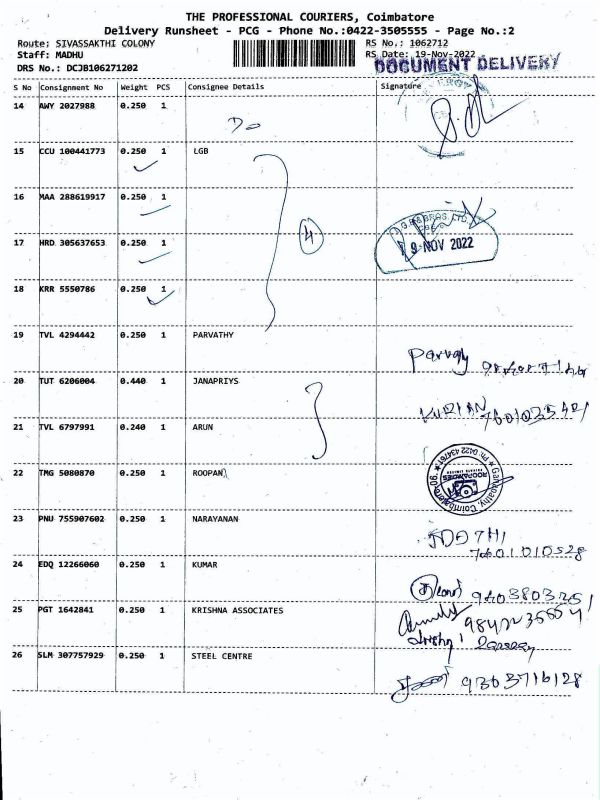 THE PROFESSIONAL COURIERS, Coimbatore
Delivery Runsheet - PCG - Phone No.:0422-3505555 - Page No.:2
Route: SIVASSAKTHI COLONY RS No.: 1062712
Staff: MADHU RS Date: 19-Nov-2022
DRS No.: DCJB106271202 DOCUMENT DELIVERY
S No Consignment No Weight PCS Consignee Details Signature
14 AWY 2027988 0.250 1
Do
15 CCU 100441773 0.250 1 LGB
16 MAA 288619917 0.250 1
17 HRD 305637653 0.250 1
4
9 NOV 2022
18 KRR 5550786 0.250 1
19 TVL 4294442 0.250 1 PARVATHY
Parvathy
20 TUT 6206004 0.440 1 JANAPRIYS
KURIAN
21 TVL 6797991 0.240 1 ARUN
22 TMG 5080870 0.250 1 ROOPAN
Ganapathy, Coimbatore
23 PNU 755907602 0.250 1 NARAYANAN
JOTHI
7601010528
24 EDQ 12266060 0.250 1 KUMAR
25 PGT 1642841 0.250 1 KRISHNA ASSOCIATES
26 SLM 307757929 0.250 1 STEEL CENTRE
9363716128